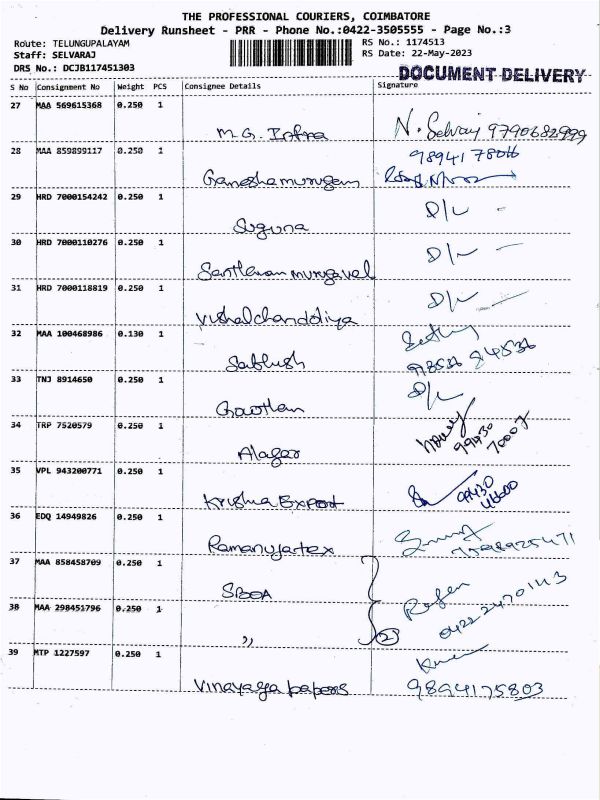 THE PROFESSIONAL COURIERS, COIMBATORE
Delivery Runsheet - PRR - Phone No.:0422-3505555 - Page No.:3
Route: TELUNGUPALAYAM RS No.: 1174513
Staff: SELVARAJ RS Date: 22-May-2023
DRS No.: DCJB117451303 DOCUMENT DELIVERY
S No Consignment No Weight PCS Consignee Details Signature
27 MAA 569615368 0.250 1
M.G. Infra N. Selvaj 9790682999
28 MAA 859899117 0.250 1
Ganeshamurugan 98941 78016
29 HRD 7000154242 0.250 1
Suguna D/L -
30 HRD 7000110276 0.250 1
Santhanam murugavel D/L -
31 HRD 7000118819 0.250 1
Vishalchanddiya D/L -
32 MAA 100468986 0.130 1
Sabhush 98536 84536
33 TNJ 8914650 0.250 1
Gowthan D/L
34 TRP 7520579 0.250 1
Alagar 99430 70007
35 VPL 943200771 0.250 1
Krishna Export 99430 46600
36 EDQ 14949826 0.250 1
Ramanujartex
37 MAA 858458709 0.250 1
SBOA
38 MAA 298451796 0.250 1
,, 2 0422 2470143
39 MTP 1227597 0.250 1
Vinayaga papers 9894175803